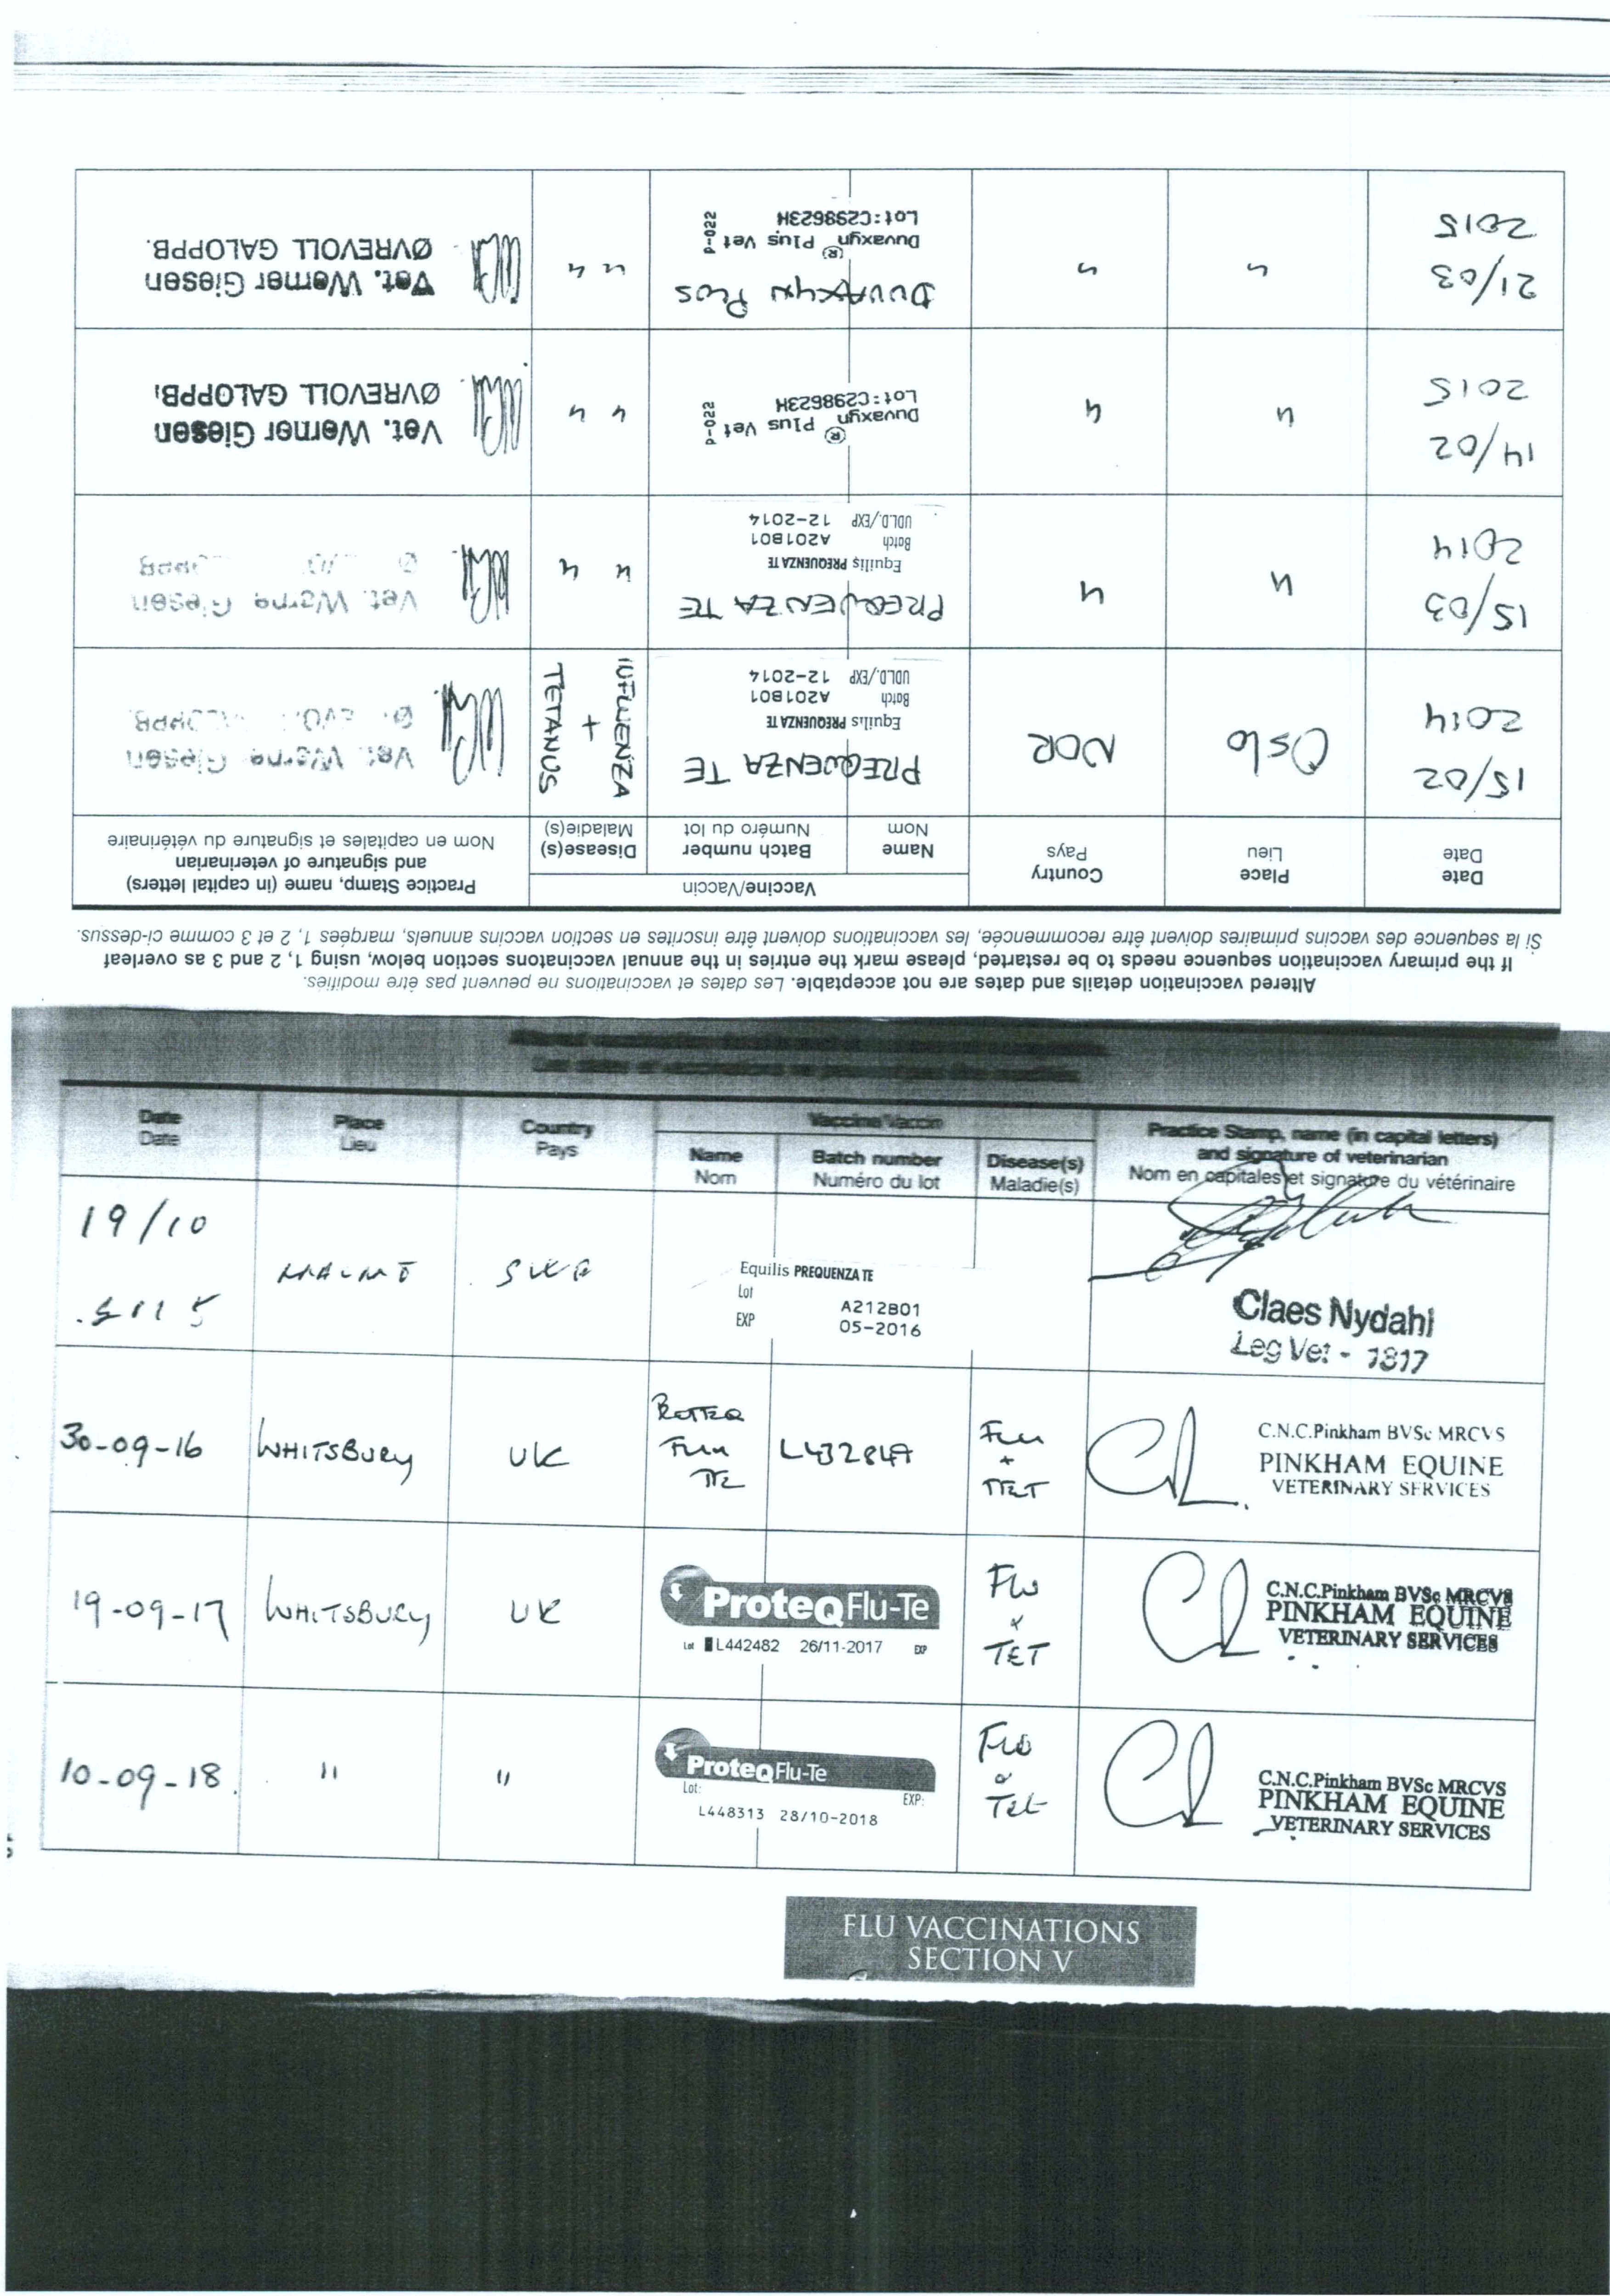 Altered vaccination details and dates are not acceptable. Les dates et vaccinations ne peuvent pas être modifiés.
If the primary vaccination sequence needs to be restarted, please mark the entries in the annual vaccinatons section below, using 1, 2 and 3 as overleaf
Si la sequence des vaccins primaires doivent être recommencée, les vaccinations doivent être inscrites en section vaccins annuels, marqées 1, 2 et 3 comme ci-dessus.
Date Date
Place Lieu
Country Pays
Vaccine/Vaccin
Name Nom
Batch number Numéro du lot
Disease(s) Maladie(s)
Practice Stamp, name (in capital letters)
and signature of veterinarian
Nom en capitales et signature du vétérinaire
15/02
2014
Oslo
NOR
PREQUENZA TE
Equilis PREQUENZA TE
Batch A201B01
UDLD./EXP 12-2014
INFLUENZA
+
TETANUS
Vet. Werne Giesen
15/03
2014
" "
PREQUENZA TE
Equilis PREQUENZA TE
Batch A201B01
UDLD./EXP 12-2014
" "
Vet. Werne Giesen
14/02
2015
" "
Duvaxyn® Plus Vet
Lot:C298623H
P-022
" "
Vet. Werner Giesen
ØVREVOLL GALOPPB.
21/03
2015
" "
DUVAXYN PLUS
Duvaxyn® Plus Vet
Lot:C298623H
P-022
" "
Vet. Werner Giesen
ØVREVOLL GALOPPB.
Date Date
Place Lieu
Country Pays
Vaccine/Vaccin
Name Nom
Batch number Numéro du lot
Disease(s) Maladie(s)
Practice Stamp, name (in capital letters)
and signature of veterinarian
Nom en capitales et signature du vétérinaire
19/10
MALMÖ
Equilis PREQUENZA TE
Lot A212B01
EXP 05-2016
Claes Nydahl
Leg Vet - 1817
30-09-16
WHITSBURY
UK
L43284A
Flu
+
TET
C.N.C.Pinkham BVSc MRCVS
PINKHAM EQUINE
VETERINARY SERVICES
19-09-17
WHITSBURY
UK
ProteqFlu-Te
Lot L442482 26/11-2017 EXP
Flu
&
TET
C.N.C.Pinkham BVSc MRCVS
PINKHAM EQUINE
VETERINARY SERVICES
10-09-18
" "
ProteqFlu-Te
Lot: EXP:
L448313 28/10-2018
Flu
&
Tet
C.N.C.Pinkham BVSc MRCVS
PINKHAM EQUINE
VETERINARY SERVICES
FLU VACCINATIONS
SECTION V